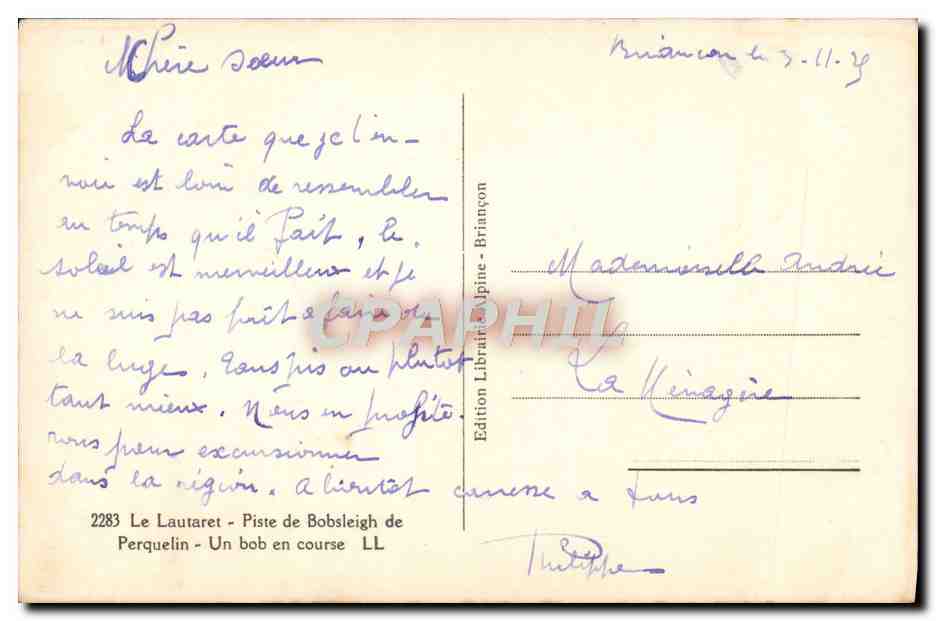 Briançon le 3-11-35
Chère soeur
La carte que je t'en-
voie est loin de ressembler
au temps qu'il fait, le
soleil est merveilleux et je
ne suis pas prêt à faire de
la luge. Tans pis ou plutot
tant mieux. Nous en profite-
rons pour excursionner
dans la région. A bientôt caresse a tous
Philippe
Mademoiselle Andrée
La Ménagère
Edition Librairie Alpine - Briançon
2283 Le Lautaret - Piste de Bobsleigh de
Perquelin - Un bob en course LL
CPAPHIL